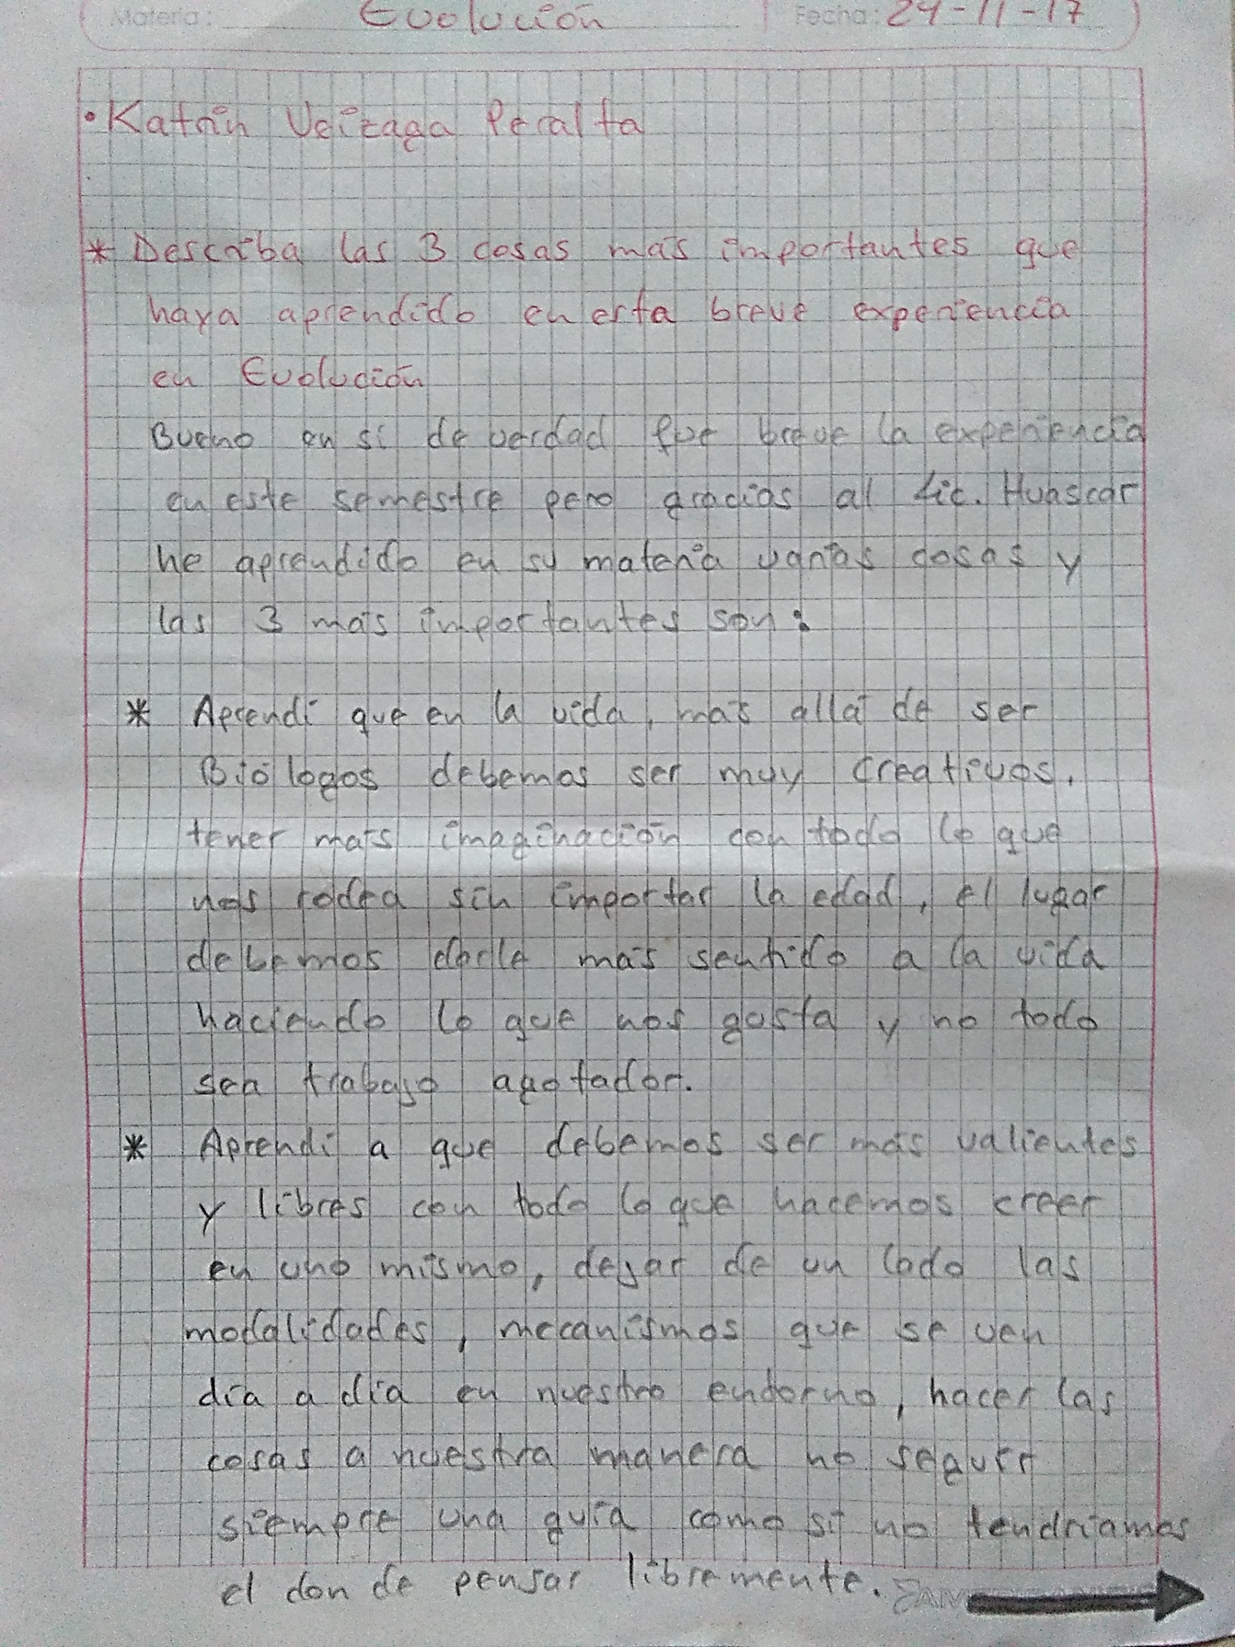 Materia: Evolución Fecha: 24-11-17
• Katrin Veizaga Peralta
* Describa las 3 cosas más importantes que
haya aprendido en esta breve experiencia
en Evolución
Bueno en si de verdad fue breve la experiencia
en este semestre pero gracias al Lic. Huascar
he aprendido en su materia varias cosas y
las 3 más importantes son:
* Aprendí que en la vida, más allá de ser
Biólogos debemos ser muy creativos,
tener más imaginación con todo lo que
nos rodea sin importar la edad, el lugar
debemos darle más sentido a la vida
haciendo lo que nos gusta y no todo
sea trabajo agotador.
* Aprendí a que debemos ser más valientes
y libres con todo lo que hacemos creer
en uno mismo, dejar de un lado las
modalidades, mecanismos que se ven
día a día en nuestro entorno, hacer las
cosas a nuestra manera no seguir
siempre una guía como si no tendríamos
el don de pensar libremente.